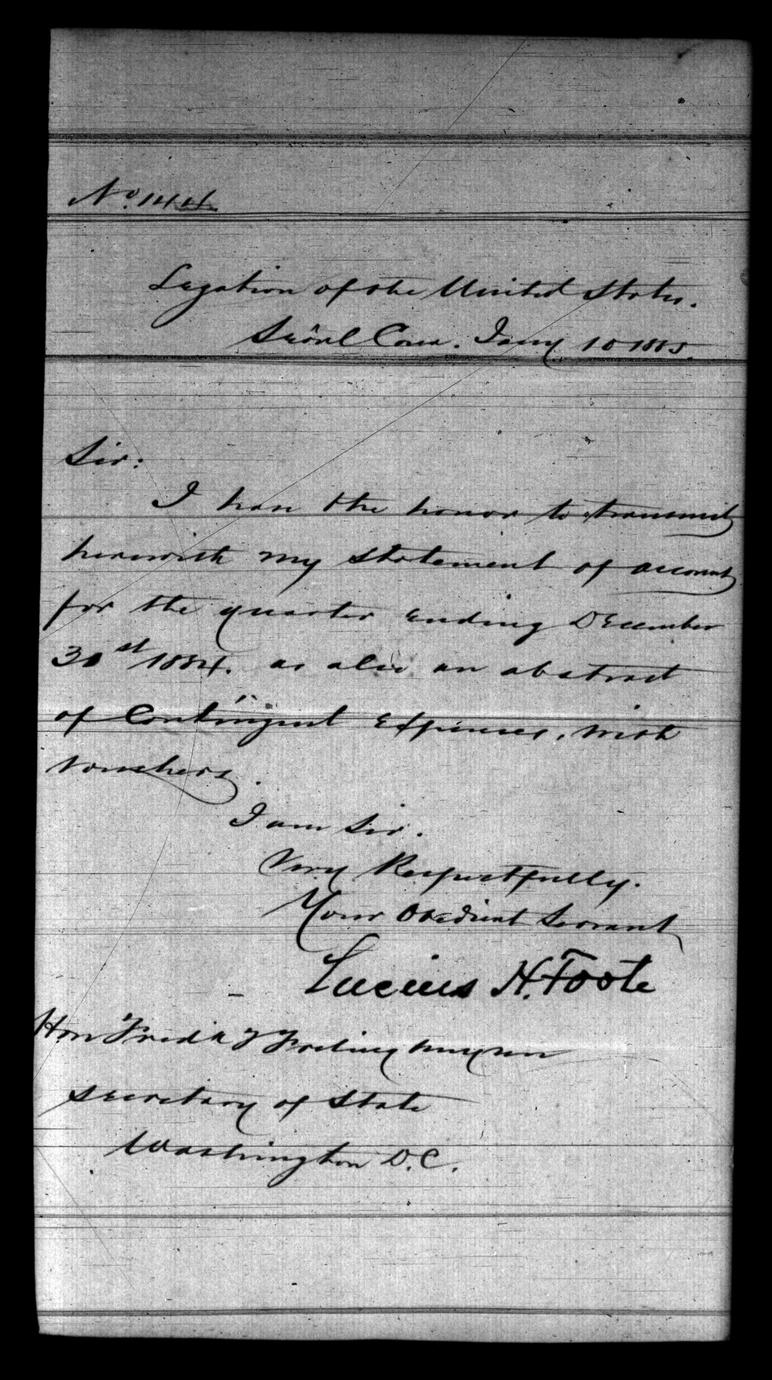 No. 144
Legation of the United States.
Seöul Corea. Jany 10 1885.
Sir:
I have the honor to transmit
herewith my statement of account
for the quarter ending December
30st 1884. as also an abstract
of Contingent Expenses, with
vouchers.
I am Sir.
Very Respectfully.
Your Obedient Servant
Lucius H. Foote
Hon Fred'k T Frelinghuysen
Secretary of State
Washington D.C.